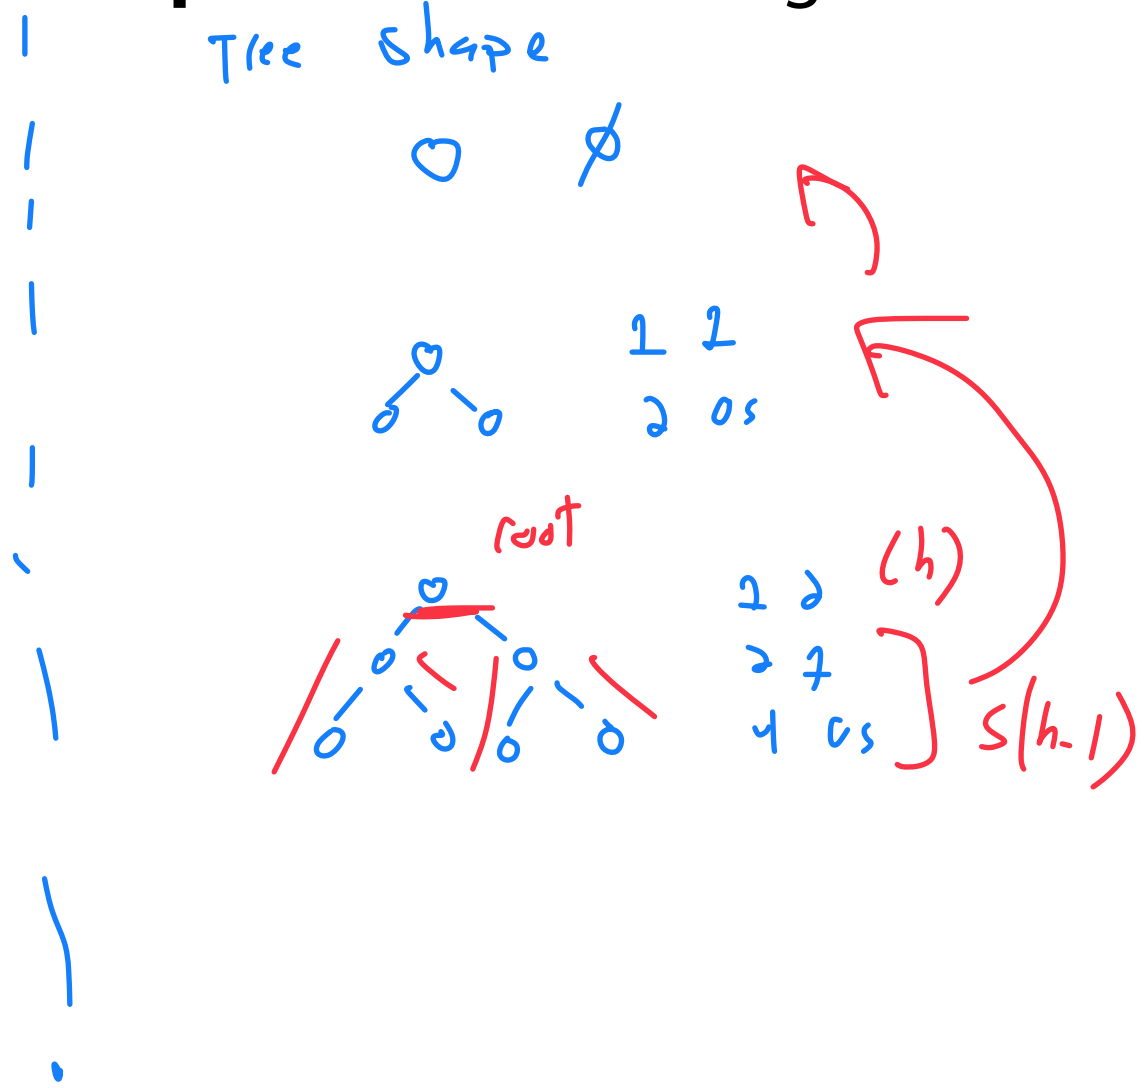 Tree shape
0 ∅
1 1
2 0s
root
(h)
1 2
2 1
4 0s
S(h-1)